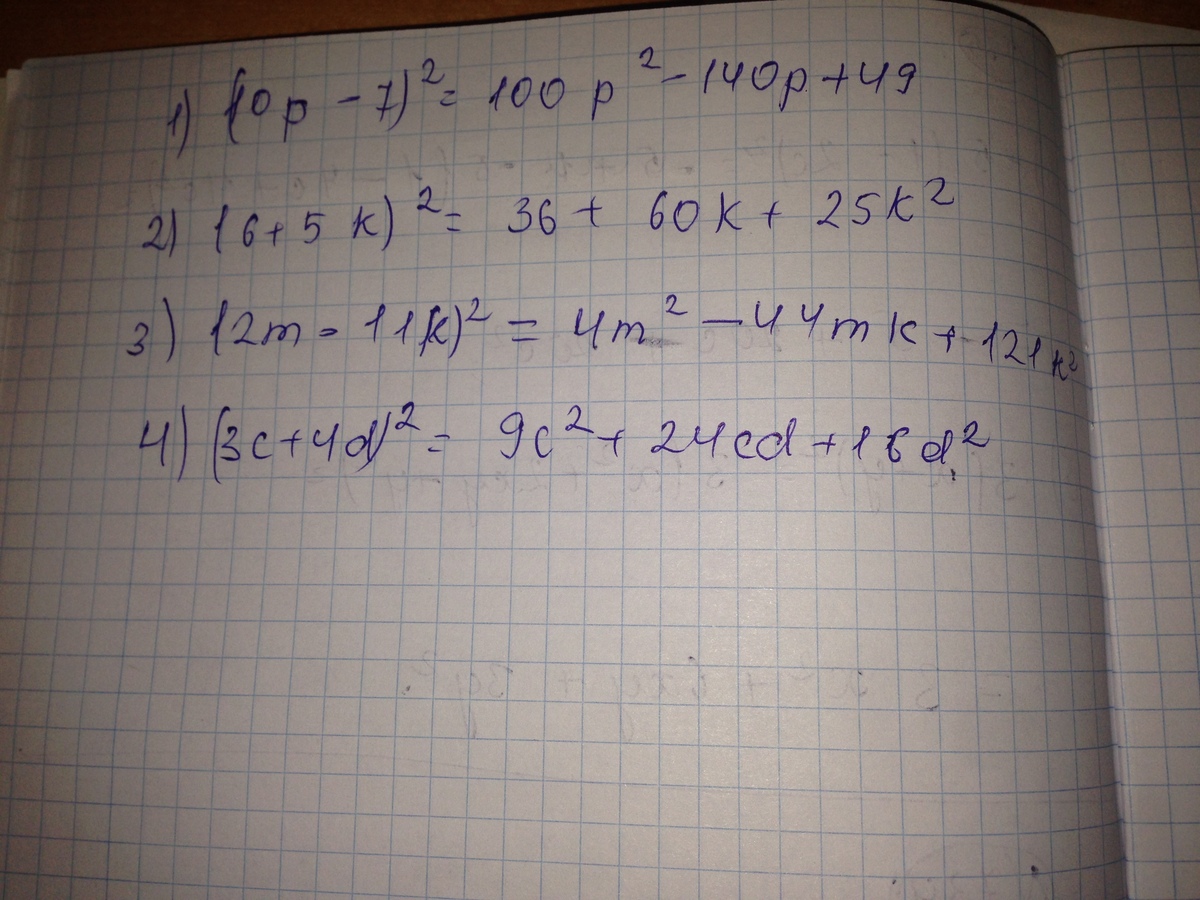 1) (10p - 7)² = 100p² - 140p + 49
2) (6 + 5k)² = 36 + 60k + 25k²
3) (2m - 11k)² = 4m² - 44mk + 121k²
4) (3c + 4d)² = 9c² + 24cd + 16d²